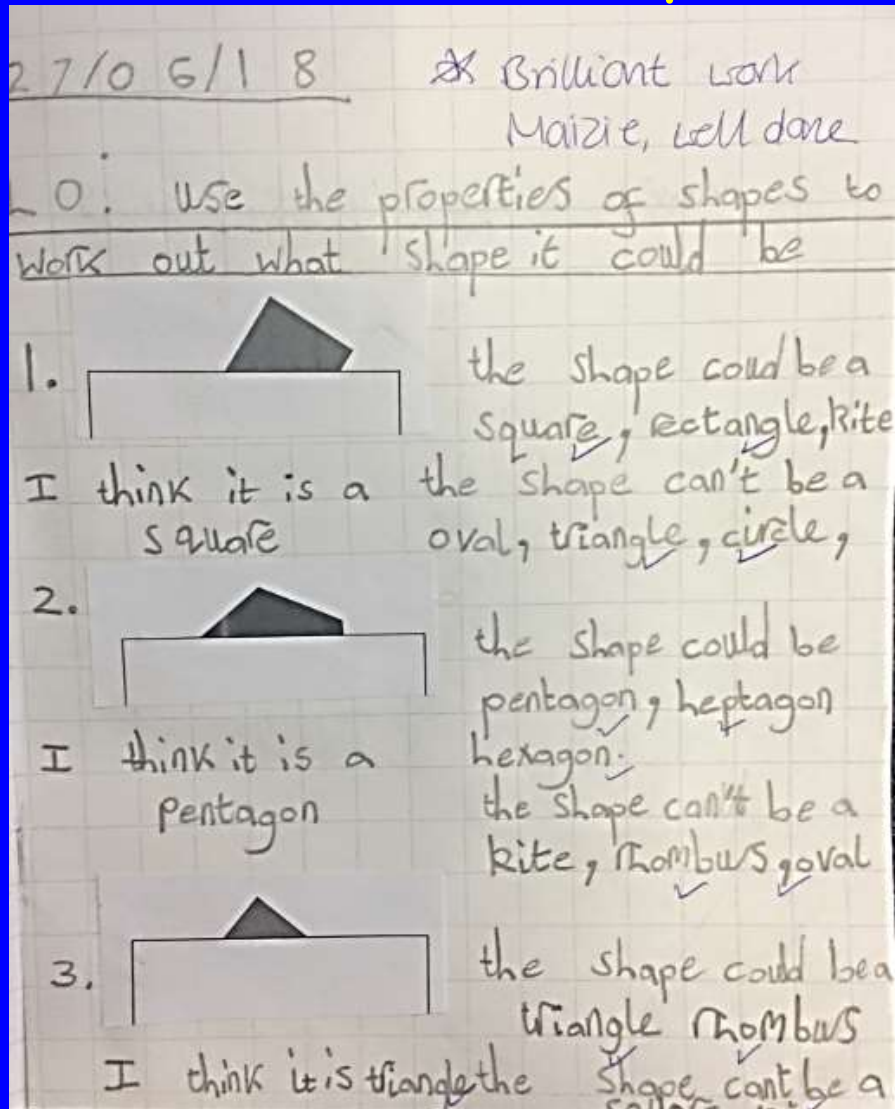 27/06/18
* Brilliant work
Maizie, well done
LO: Use the properties of shapes to
work out what shape it could be
1.
the shape coud be a
square, rectangle, kite
I think it is a
square
the shape can't be a
oval, triangle, circle,
2.
the shape could be
pentagon, heptagon
hexagon.
I think it is a
pentagon
the shape can't be a
kite, rhombus, oval
3.
the shape could be a
triangle rhombus
I think it is triangle
the shape cant be a